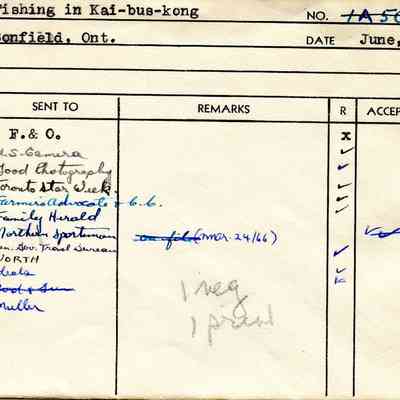 Fishing in Kai-bus-kong NO. 1A50
Bonfield, Ont. DATE June,
SENT TO REMARKS R ACCEP
F. & O. x
U.S. Camera
Good Photography
Toronto Star Week.
Farmer's Advocate & C.G.
Family Herald
Northern Sportsman on file (Mar. 24/66)
Can. Gov. Travel Bureau
NORTH
Ideals
Rod & Gun
Miller
1 neg
1 print